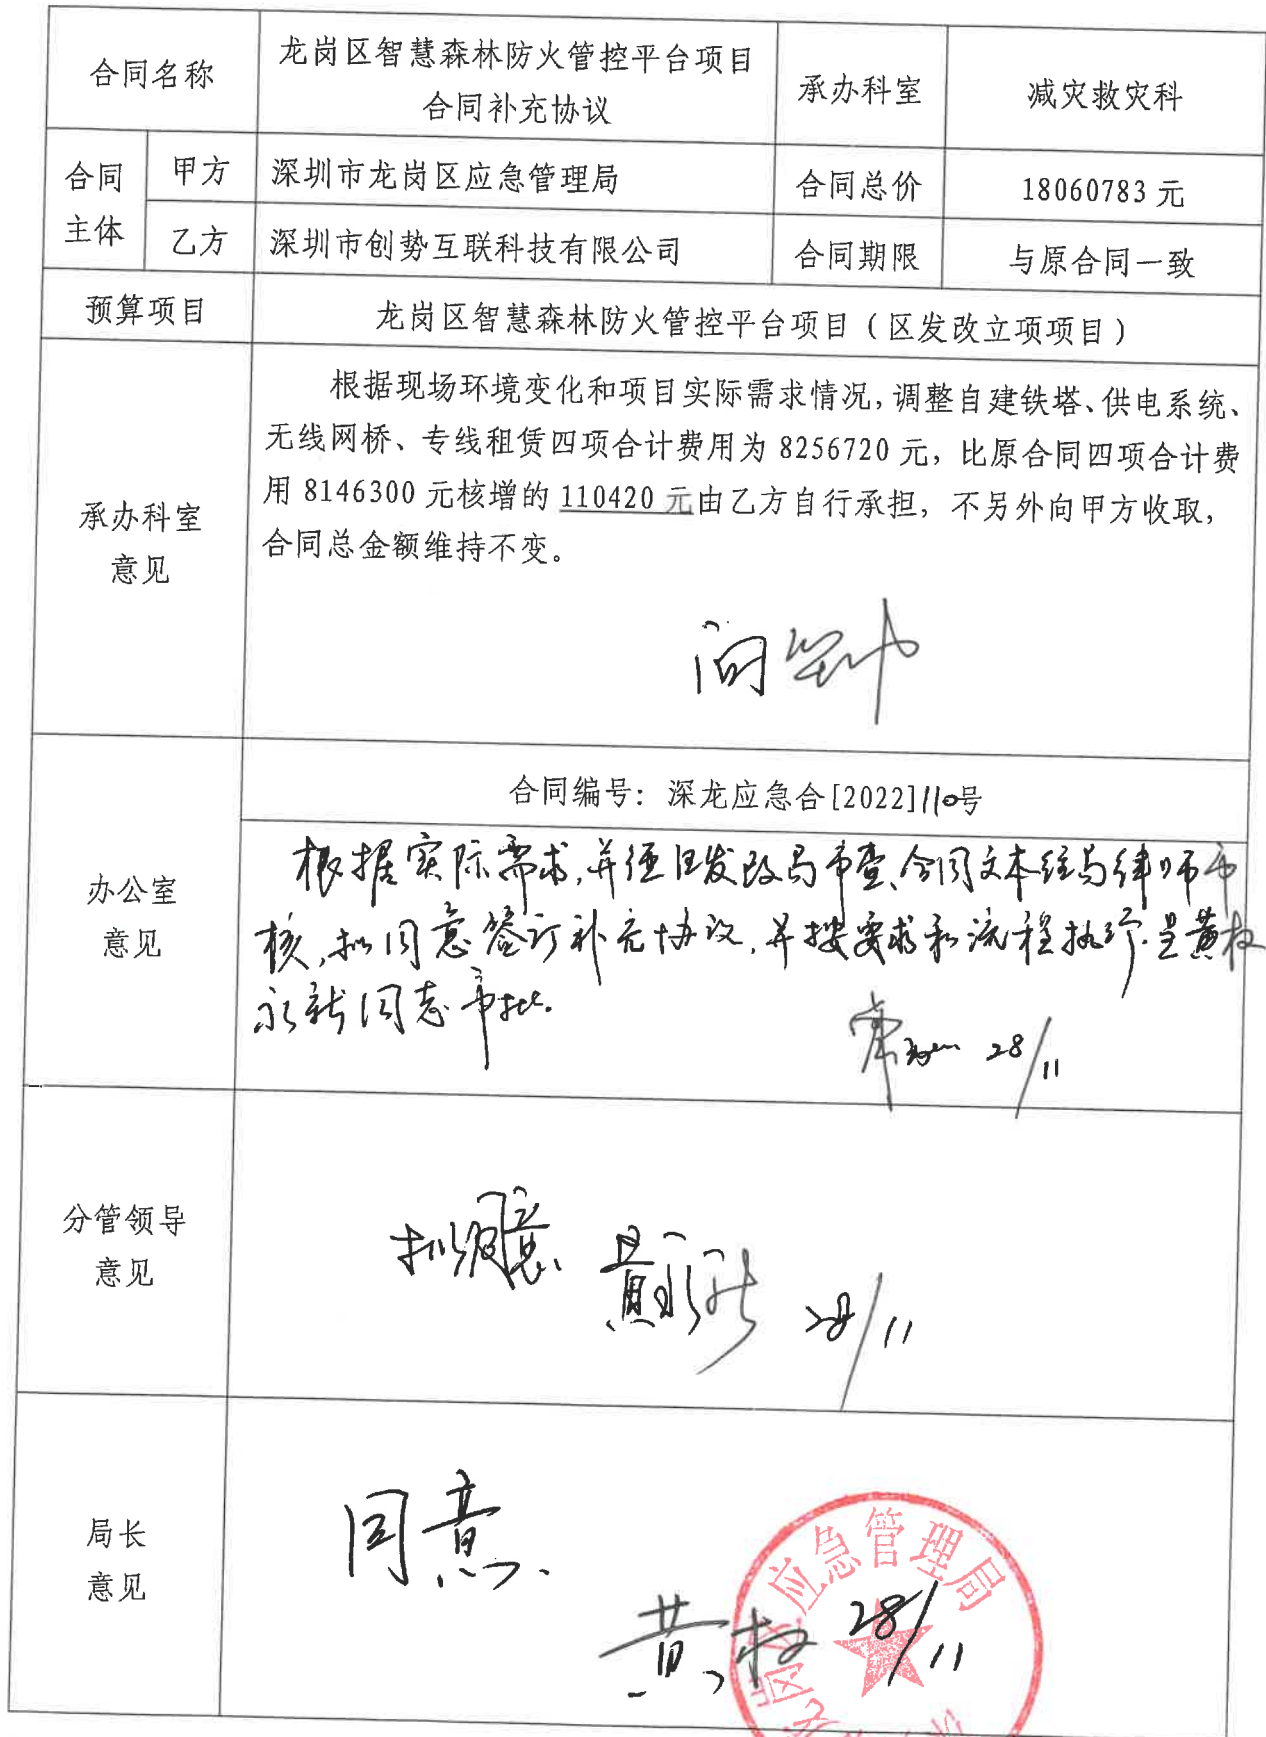 合同名称
龙岗区智慧森林防火管控平台项目
合同补充协议
承办科室
减灾救灾科
合同
主体
甲方
深圳市龙岗区应急管理局
合同总价
18060783 元
乙方
深圳市创势互联科技有限公司
合同期限
与原合同一致
预算项目
龙岗区智慧森林防火管控平台项目（区发改立项项目）
承办科室
意见
根据现场环境变化和项目实际需求情况，调整自建铁塔、供电系统、
无线网桥、专线租赁四项合计费用为 8256720 元，比原合同四项合计费
用 8146300 元核增的 110420 元由乙方自行承担，不另外向甲方收取，
合同总金额维持不变。
办公室
意见
合同编号：深龙应急合[2022]110号
根据实际需求,并经区发改局审查,合同文本经局律师审
核,拟同意签订补充协议,并按要求和流程执行.呈黄
永新同志审批.
28/11
分管领导
意见
拟同意 黄永新 28/11
局长
意见
同意.
黄 28/11
应急管理局